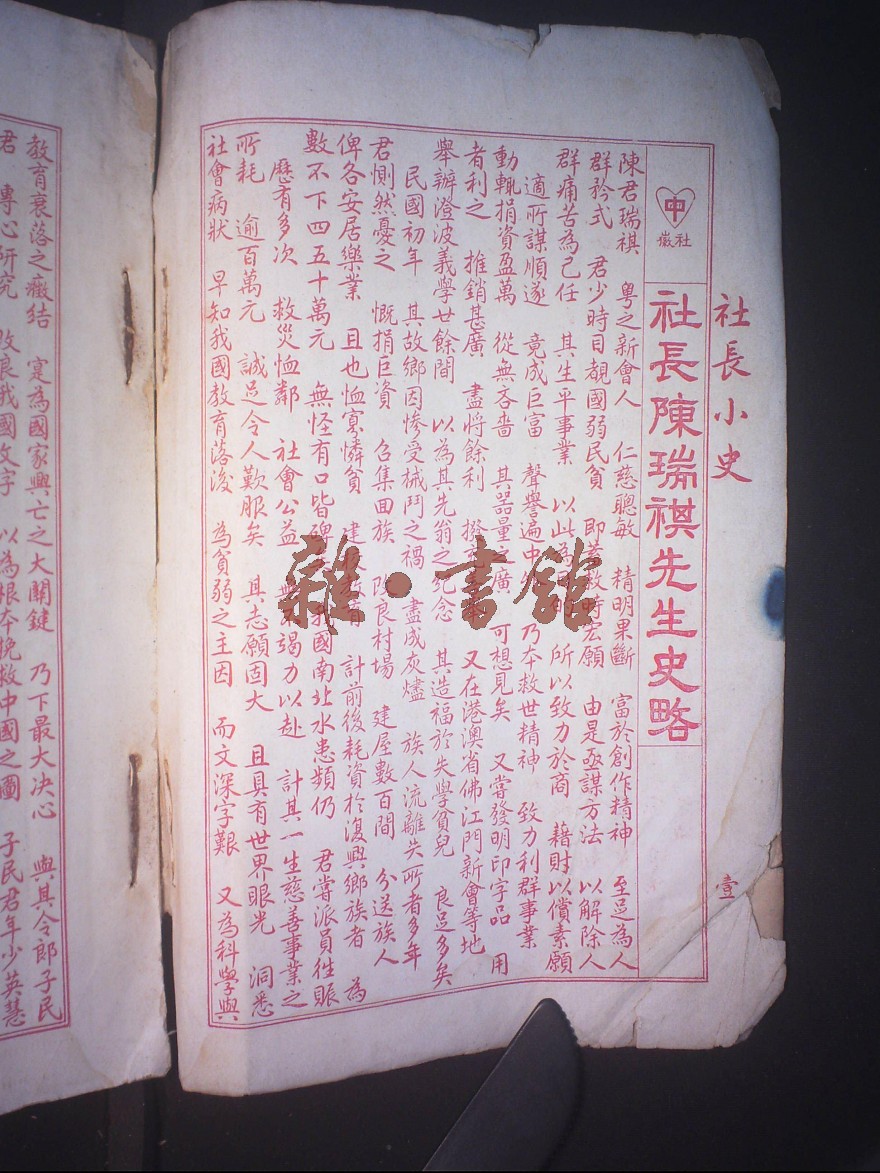 社長小史
壹
中
社徽
社長陳瑞祺先生史略
陳君瑞祺 粤之新會人 仁慈聰敏 精明果斷 富於創作精神 至足為人
群矜式 君少時目覩國弱民貧 即蓄救時宏願 由是亟謀方法 以解除人
群痛苦為己任 其生平事業 以此為 所以致力於商 藉財以償素願
適所謀順遂 竟成巨富 聲譽遍中 乃本救世精神 致力利群事業
動輒捐資盈萬 從無吝嗇 其器量之廣 可想見矣 又嘗發明印字品 用
者利之 推銷甚廣 盡將餘利 撥 又在港澳省佛江門新會等地
舉辦澄波義學廿餘間 以為其先翁之紀念 其造福於失學貧兒 良足多矣
民國初年 其故鄉因慘受械鬥之禍 盡成灰燼 族人流離失所者多年
君惻然憂之 慨捐巨資 召集回族 改良村場 建屋數百間 分送族人
俾各安居樂業 且也恤寡憐貧 建 計前後耗資於復興鄉族者 為
數不下四五十萬元 無怪有口皆碑 我國南北水患頻仍 君嘗派員往賑
歷有多次 救災恤鄰 社會公益 無不竭力以赴 計其一生慈善事業之
所耗 逾百萬元 誠足令人歎服矣 其志願固大 且具有世界眼光 洞悉
社會病狀 早知我國教育落後 為貧弱之主因 而文深字艱 又為科學與
教育衰落之癥結 寔為國家興亡之大關鍵 乃下最大决心 與其令郎子民
君 專心研究 改良我國文字 以為根本挽救中國之圖 子民君年少英慧
雜·書館